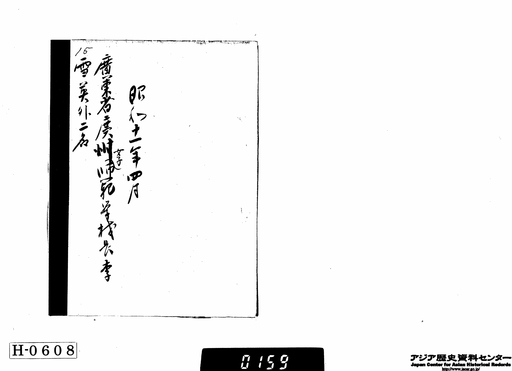 15
昭和十一年四月
廣東省廣州女子師範学校長李
雪英外二名
H-0608
0159
アジア歴史資料センター
Japan Center for Asian Historical Records
http://www.jacar.go.jp/